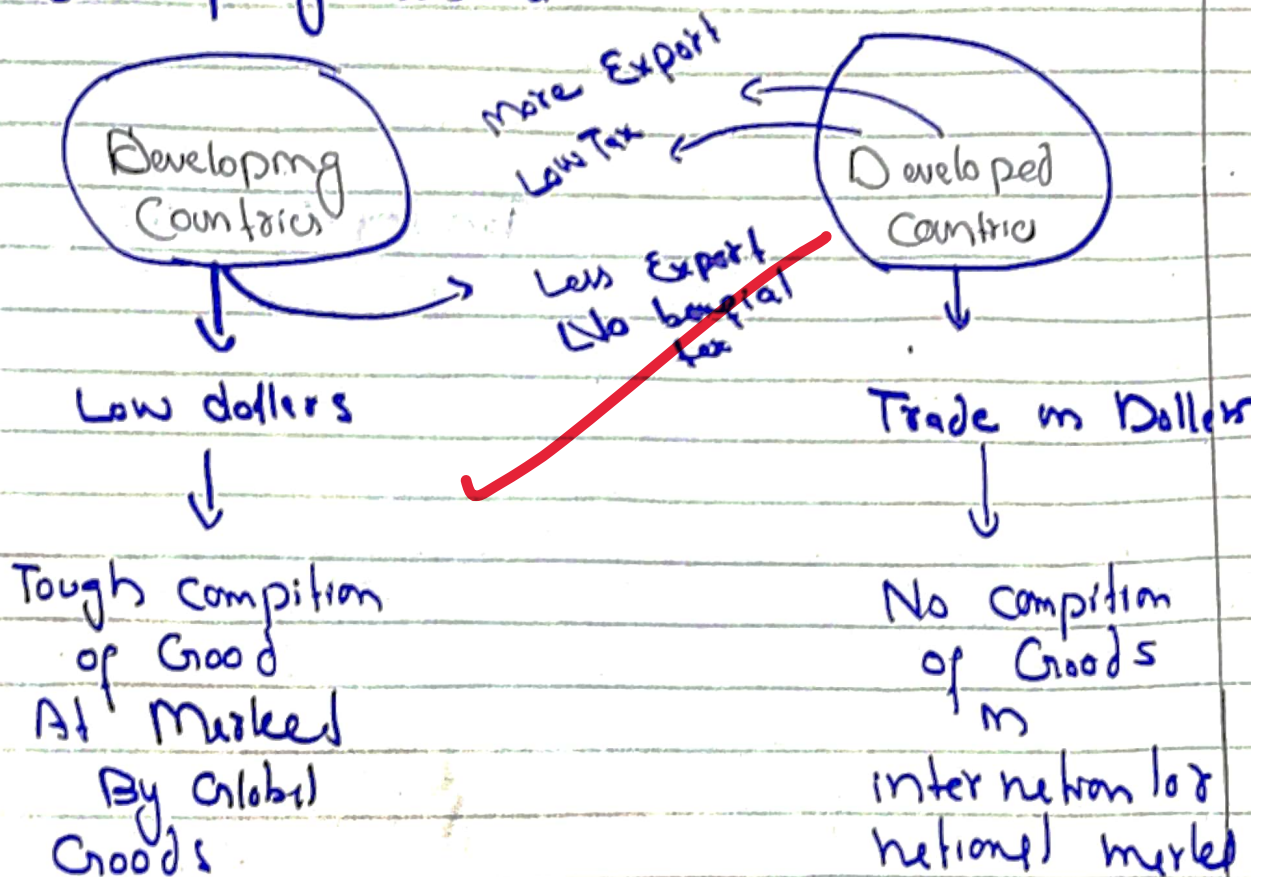 Developing
Countries
More Export
Low Tax
Developed
Countries
Less Export
No
tax
Low dollers
Trade in Dollers
Tough compition
of Good
At Merked
By Global
Goods
No compition
of Goods
in
internetion lor
netionel merked